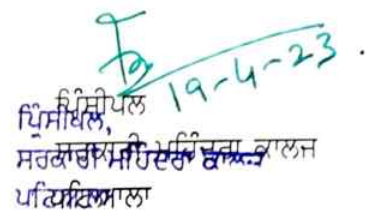 19-4-23
ਪ੍ਰਿੰਸੀਪਲ
ਪ੍ਰਿੰਸੀਪਲ,
ਸਰਕਾਰੀ ਮਹਿੰਦਰਾ ਕਾਲਜ
ਸਰਕਾਰੀ ਮਹਿੰਦਰਾ ਕਾਲਜ
ਪਟਿਆਲਾ